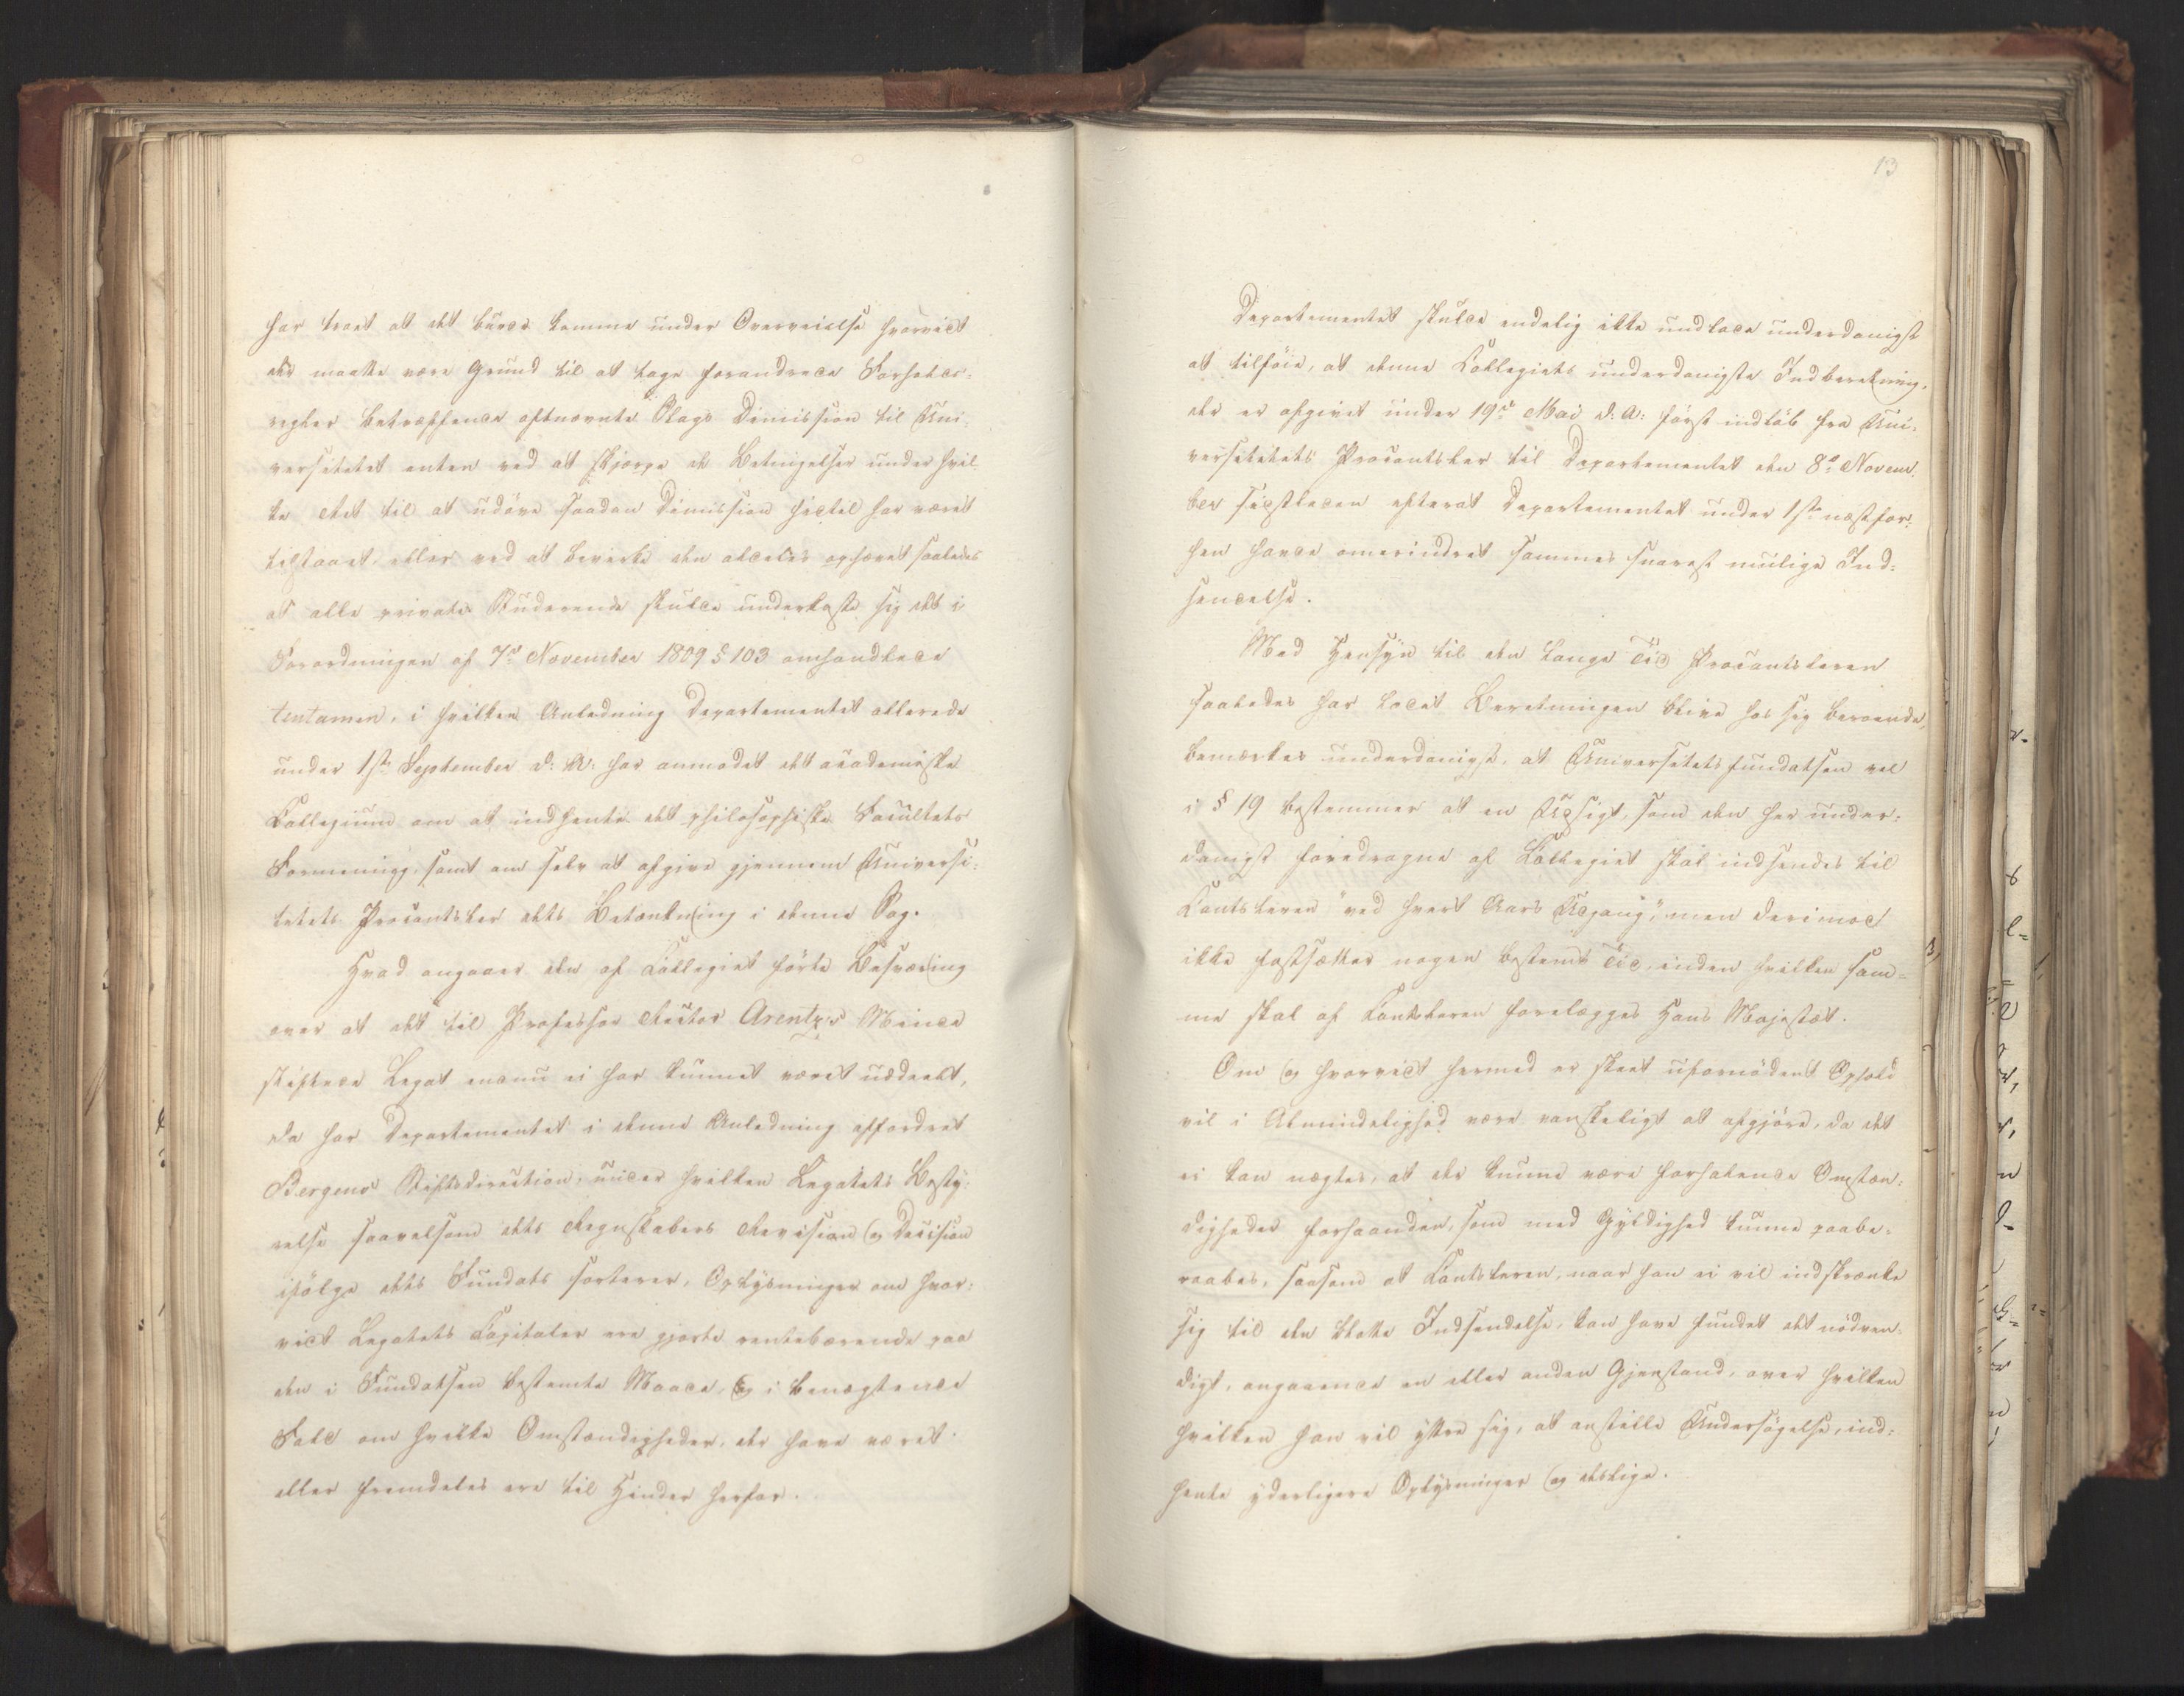 har troet at det burde komme under Overveielse hvorvidt
der maatte være Grund til at tage forandrede Forholds-
regler betræffende oftnævnte Slags Dimission til Uni-
versitetet enten ved at skjærpe de Betingelser under hvil-
ke Ret til at udöve saadan Dimission hidtil har været
tilstaaet, eller ved at bevirke den aldeles ophævet saaledes
at alle private Studerende skulde underkaste sig det i
Forordningen af 7de November 1809 § 103 omhandlede
tentamen, i hvilken Anledning Departementet allerede
under 1ste September d: A: har anmodet det academiske
Collegium om at indhente det philosophiske Facultets
Formening, samt om selv at afgive gjennem Universi-
tetets Procantsler dets Betænkning i denne Sag.
Hvad angaaer den af Collegiet förte Besværing
over at det til Professor Rector Arentz's Minde
stiftede Legat endnu ei har kunnet været uddeelt,
da har Departementet i denne Anledning affordret
Bergens Stiftsdirection, under hvilken Legatets Besty-
relse saavelsom dets Regnskabers Revision og Decision
ifölge dets Fundats sorterer, Oplysninger om hvor-
vidt Legatets Capitaler ere gjorte rentebærende paa
den i Fundatsen bestemte Maade, og i benægtende
Fald om hvilke Omstændigheder, der have været
eller fremdeles ere til Hinder herfor.
13
Departementet skulde endelig ikke undlade underdanigst
at tilföie, at denne Collegiets underdanigste Indberetning,
der er afgivet under 19de Mai d: A: först indlöb fra Uni-
versitetets Procantsler til Departementet den 8de Novem-
ber sidstleden efterat Departementet under 1ste næstfor-
hen havde omerindret sammes snarest mulige Ind-
sendelse.
Med Hensyn til den lange Tid Procantsleren
saaledes har ladet Beretningen blive hos sig beroende,
bemærkes underdanigst, at Universitetsfundatsen vel
i § 19 bestemmer at en Udsigt, som den her under-
danigst foredragne af Collegiet skal indsendes til
Cantsleren "ved hvert Aars Udgang", men derimod
ikke fastsætter nogen bestemt Tid, inden hvilken sam-
me skal af Cantsleren forelægges Hans Majestæt.
Om og hvorvidt hermed er skeet ufornödent Ophold
vil i Almindelighed være vanskeligt at afgjöre, da det
ei kan nægtes, at der kunne være forhalende Omstæn-
digheder forhaanden, som med Gyldighed kunne paabe-
raabes, saasom at Cantsleren, naar han ei vil indskrænke
sig til den blotte Indsendelse, kan have fundet det nödven-
digt, angaaende en eller anden Gjenstand, over hvilken
hvilken han vil yttre sig, at anstille Undersögelse, ind-
hente yderligere Oplysninger og deslige.